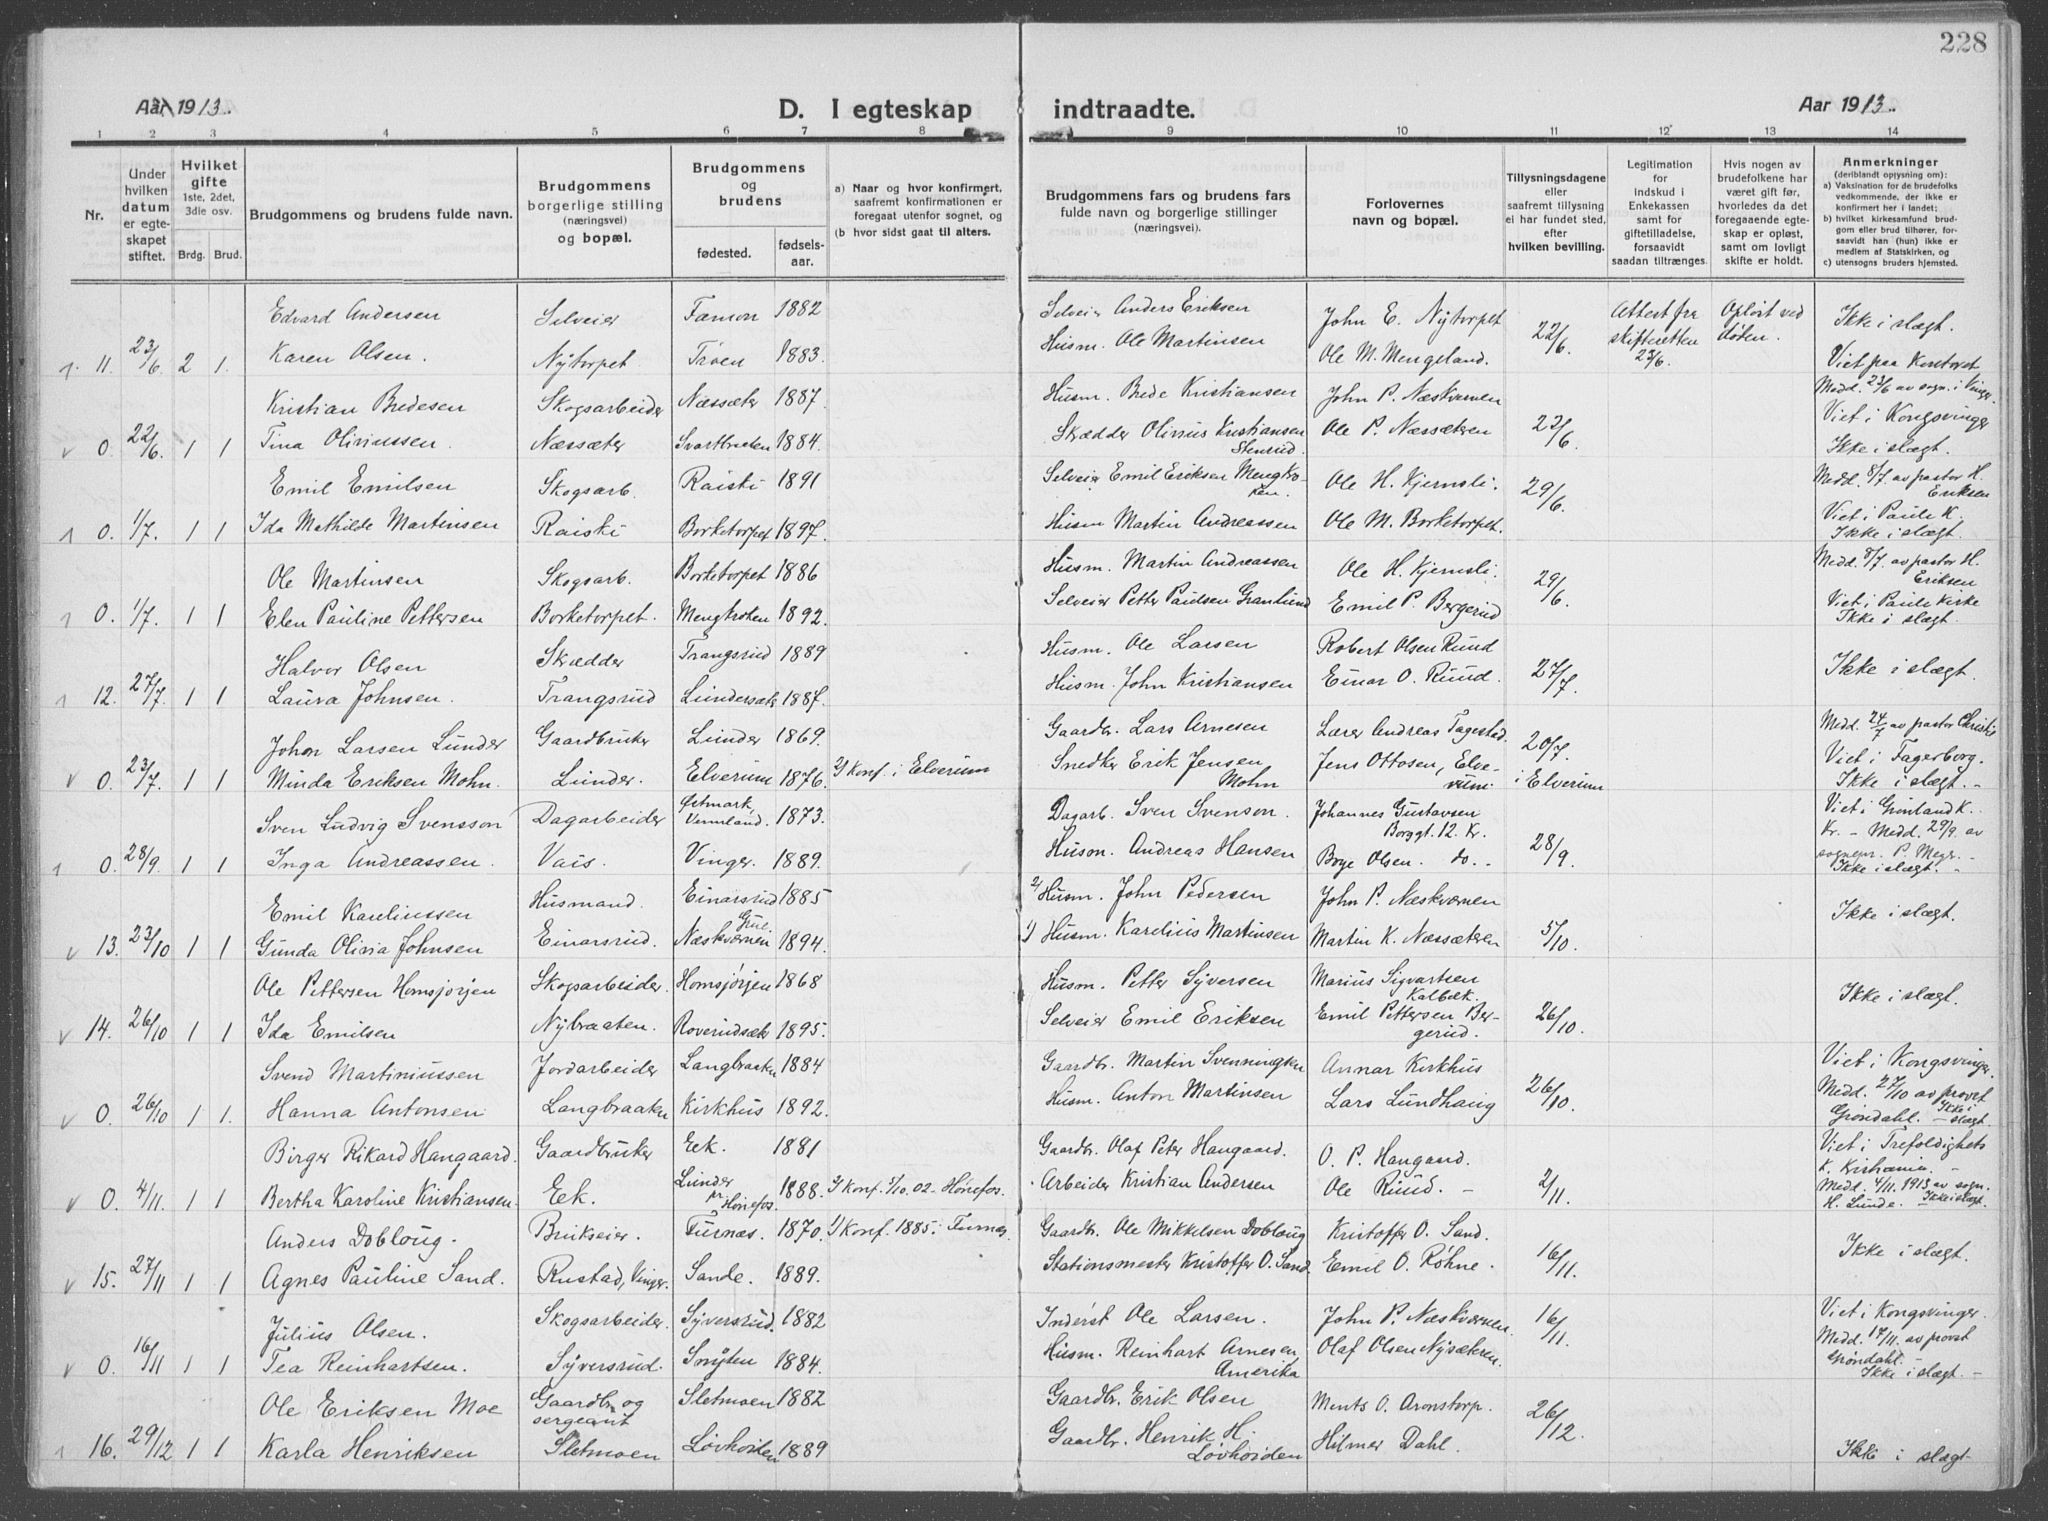 228
Aar 1913.
D. I egteskap indtraadte.
Aar 1913.
1 2 3 4 5 6 7 8 9 10 11 12 13 14
Nr.
Under hvilken datum er egteskapet stiftet.
Hvilket gifte 1ste, 2det, 3die osv.
Brdg. Brud.
Brudgommens og brudens fulde navn.
Brudgommens borgerlige stilling (næringsvei) og bopæl.
Brudgommens og brudens
fødested. fødsels-aar.
a) Naar og hvor konfirmert, saafremt konfirmationen er foregaat utenfor sognet, og
(b hvor sidst gaat til alters.
Brudgommens fars og brudens fars fulde navn og borgerlige stillinger (næringsvei).
Forlovernes navn og bopæl.
Tillysningsdagene eller saafremt tillysning ei har fundet sted, efter hvilken bevilling.
Legitimation for indskud i Enkekassen samt for giftetilladelse, forsaavidt saadan tiltrænges.
Hvis nogen av brudefolkene har været gift før, hvorledes da det foregaaende egteskap er opløst, samt om lovligt skifte er holdt.
Anmerkninger (deriblandt oplysning om):
a) Vaksination for de brudefolks vedkommende, der ikke er konfirmert her i landet;
b) hvilket kirkesamfund brudgom eller brud tilhører, forsaavidt han (hun) ikke er medlem av Statskirken, og
c) utensogns bruders hjemsted.
Edvard Andersen Selveier Fæmon 1882 Selveier Anders Eriksen John E. Nytorpet Attest fra Opløst ved Ikke i slægt.
11. 23/6 2 1. Karen Olsen. Nytorpet Trøen 1883. Husm. Ole Martinsen Ole M. Mengeland. 22/6. skifteretten 23/6. døden. Viet paa Kontoret
Kristian Bredesen Skogsarbeider Næssæter 1887. Husm. Brede Kristiansen John P. Næskvernen Medd. 23/6 av sogn. i Vinger.
0. 22/6. 1 1 Tina Oliviussen. Næssæter Svartbruten 1884. Skrædder Olivius Kristiansen Stensrud Ole P. Næssæteren 22/6. Viet i Kongsvinger Ikke i slægt.
Emil Emilsen Skogsarb. Raiski 1891 Selveier Emil Eriksen Mengkroken. Ole H. Kjernsli. 29/6. Medd. 8/7. av pastor H. Eriksen
0. 1/7. 1 1 Ida Mathilde Martinsen Raiski Borketorpet 1897. Husm Martin Andreassen Ole M. Borketorpet. Viet i Pauls K. Ikke i slægt.
Ole Martinsen Skogsarb. Borketorpet 1886 Husm. Martin Andreassen Ole H. Kjernsli. 29/6. Medd. 8/7. av pastor H. Eriksen
0. 1/7. 1 1 Elen Pauline Pettersen Borketorpet. Mengkroken 1892. Selveier Petter Paulsen Granlund Emil P. Bergerud Viet i Pauls Kirke Ikke i slægt.
Halvor Olsen Skrædder Trangsrud 1889 Husm. Ole Larsen Robert Olsen Ruud Ikke i slægt.
12. 27/7. 1 1 Laura Johnsen. Trangsrud Lundersæter 1887. Husm. John Kristiansen Einar O. Ruud. 27/7.
Johan Larsen Lunder Gaardbruker Lunder 1869. Gaardbr. Lars Arnesen Lærer Andreas Tagestad. 20/7. Medd. 24/7 av pastor Christie
0. 23/7. 1 1 Minda Eriksen Mohn. Lunder. Elverum 1876. 2) Konf. i Elverum Snedker Erik Jensen Mohn Jens Ottosen, Elverum. i Elverum Viet i Fagerborg. Ikke i slægt. -
Sven Ludvig Svensson Dagarbeider Østmark, Vermland. 1873. Dagarb. Sven Svenson. Johannes Gustavsen Borggt. 12. Kr. Viet i Grønland K.
0. 28/9. 1 1 Inga Andreassen. Vais. Vinger. 1889. Husm. Andreas Hansen Boye Olsen. do. - 28/9. Kr. - Medd. 29/9. av sognepr. P. Ikke i slægt. -
Emil Kareliussen Husmand. Einarsrud 1885 2) Husm. John Pedersen John P. Næskvernen Ikke i slægt.
13. 23/10 1 1 Gunda Olivia Johnsen Einarsrud. Næskvernen Grue 1894. 1) Husm. Karelius Martinsen Martin K. Næssæteren 5/10.
Ole Pettersen Homsjørjen Skogsarbeider. Homsjørjen 1868 Husm. Petter Syversen Marius Sigvartsen Kalbæk. Ikke i slægt.
14. 26/10 1 1 Ida Emilsen Nybraaten. Roverudsæter 1895. Selveier Emil Eriksen Emil Pettersen Bergerud. 26/10.
Svend Martiniussen Jordarbeider Langbraaten 1884 Gaardbr. Martin Svenningsen Annar Kirkhus Viet i Kongsvinger.
0. 26/10 1 1. Hanna Antonsen Langbraaten Kirkhus 1892. Husm. Anton Martinsen Lars Lundhaug 26/10. Medd. 27/10 av provst Grøndahl. - Ikke i slægt.
Birger Rikard Haugaard. Gaardbruker Eek. 1881 Gaardbr. Olaf Peter Haugaard. O. P. Haugaard. Viet i Trefoldighets K. Kristiania. -
0. 4/11. 1 1 Bertha Karoline Kristiansen. Eek. Lunder pr Hønefos. 1888. 2) Konf. 5/10. 02 - Hønefos. Arbeider Kristian Andersen Ole Ruud. - 2/11. Medd. 4/11. 1913 av sogn. H. Lunde. - Ikke i slægt.
Anders Dobloug. Brukseier. Furnæs. 1870. 1) Konf. 1885 i Furnæs. Gaardbr. Ole Mikkelsen Dobloug Kristoffer O. Sand. Ikke i slægt.
15. 27/11 1 1 Agnes Pauline Sand. Rustad, Vinger. Sande. 1889. Stationsmester Kristoffer O. Sand. Emil O. Røhne. 16/11.
Julius Olsen. Skogsarbeider. Syversrud. 1882 Inderst Ole Larsen. John P. Næskvernen. 16/11. Viet i Kongsvinger.
0. 16/11 1 1 Tea Reinhartsen. Syversrud. Snyten 1884. Husm. Reinhart Arnesen Amerika Olaf Olsen Nysæteren. Medd. 17/11. av provst Grøndahl. - Ikke i slægt. -
Ole Eriksen Moe Gaardbr. og sergeant Sletmoen 1882 Gaardbr. Erik Olsen Ments O. Aronstorp. 26/12.
16. 29/12 1 1 Karla Henriksen Sletmoen Løvhøiden 1889 Gaardbr. Henrik H. Løvhøiden Hilmer Dahl. Ikke i slægt-